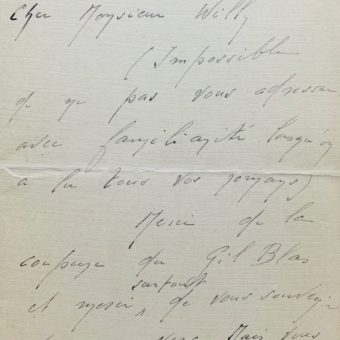 Cher Monsieur Willy
(Impossible
de ne pas vous adresser
avec familiarité lorsqu'on
a lu tous vos romans)
Merci de la
coupure du Gil Blas
surtout
et merci, de vous souvenir
vous